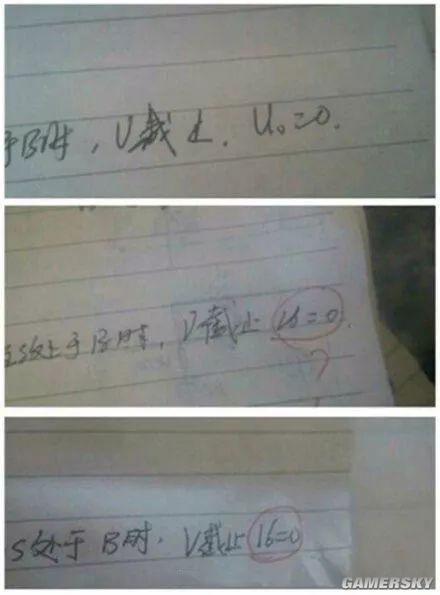 于B时，V截止．U₀=0．
S处于B时，V截止 16=0．
?
S处于B时．V截止 16=0
GAMERSKY